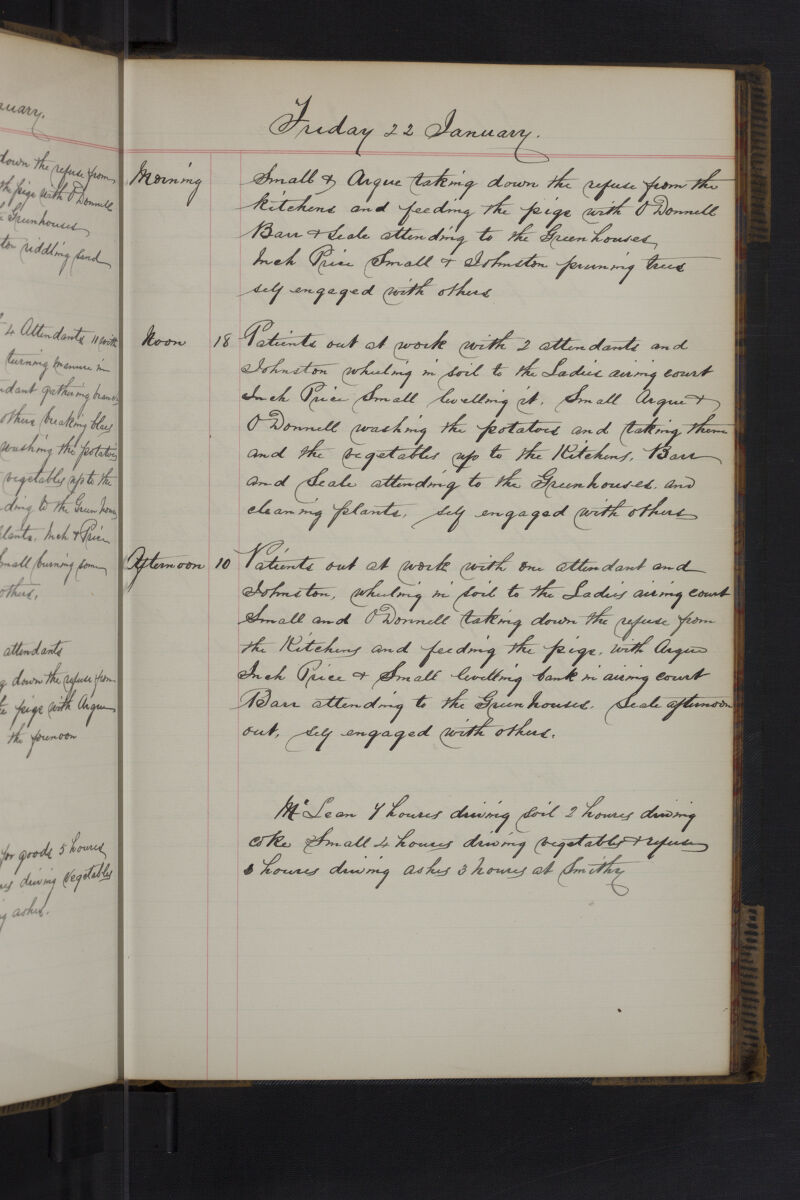 nuary.
down the refuse from
the pigs with O'Donnell
Greenhouses
riddling sand
4 Attendants 11 with
turning manure in
dant gathering
others breaking
washing the potatoes
vegetables up to the
ding to the Green houses
plants. Inch & Price
Small burning some
others.
attendants
down the refuse from
the pigs with Argue
the forenoon
for goods 5 houres
driving vegetables
ashes.
Friday 22 January.
Morning Small & Argue taking down the refuse from the
kitchens and feeding the pigs with O'Donnell
Barr & Seale attending to the Greenhouses
Inch Price Small & Johnston pruning trees
self engaged with others
Noon 18 Patients out at work with 2 attendants and
Johnston wheeling in soil to the Ladies airing court
Inch Price Small levelling it. Small Argue &
O'Donnell washing the potatoes and taking them
and the vegetables up to the Kitchens. Barr
and Seale attending to the Greenhouses. and
cleaning plants. self engaged with others
Afternoon 10 Patients out at work with one attendant and
Johnston, wheeling in soil to the Ladies airing court
Small and O'Donnell taking down the refuse from
the Kitchens and feeding the pigs. with Argue
Inch Price & Small levelling bank in airing court
Barr attending to the Greenhouses. Seale afternoon
out, self engaged with others.
McLean 7 houres driving soil 2 houres driving
coke Small 4 houres driving vegetables & refuse
houres driving ashes 3 houres at Smithy